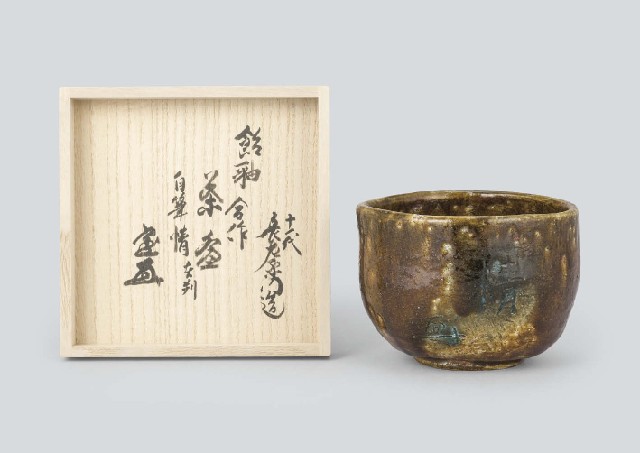 十一代
長左衛門造
飴釉
合作
茶盌
自筆 情 在判